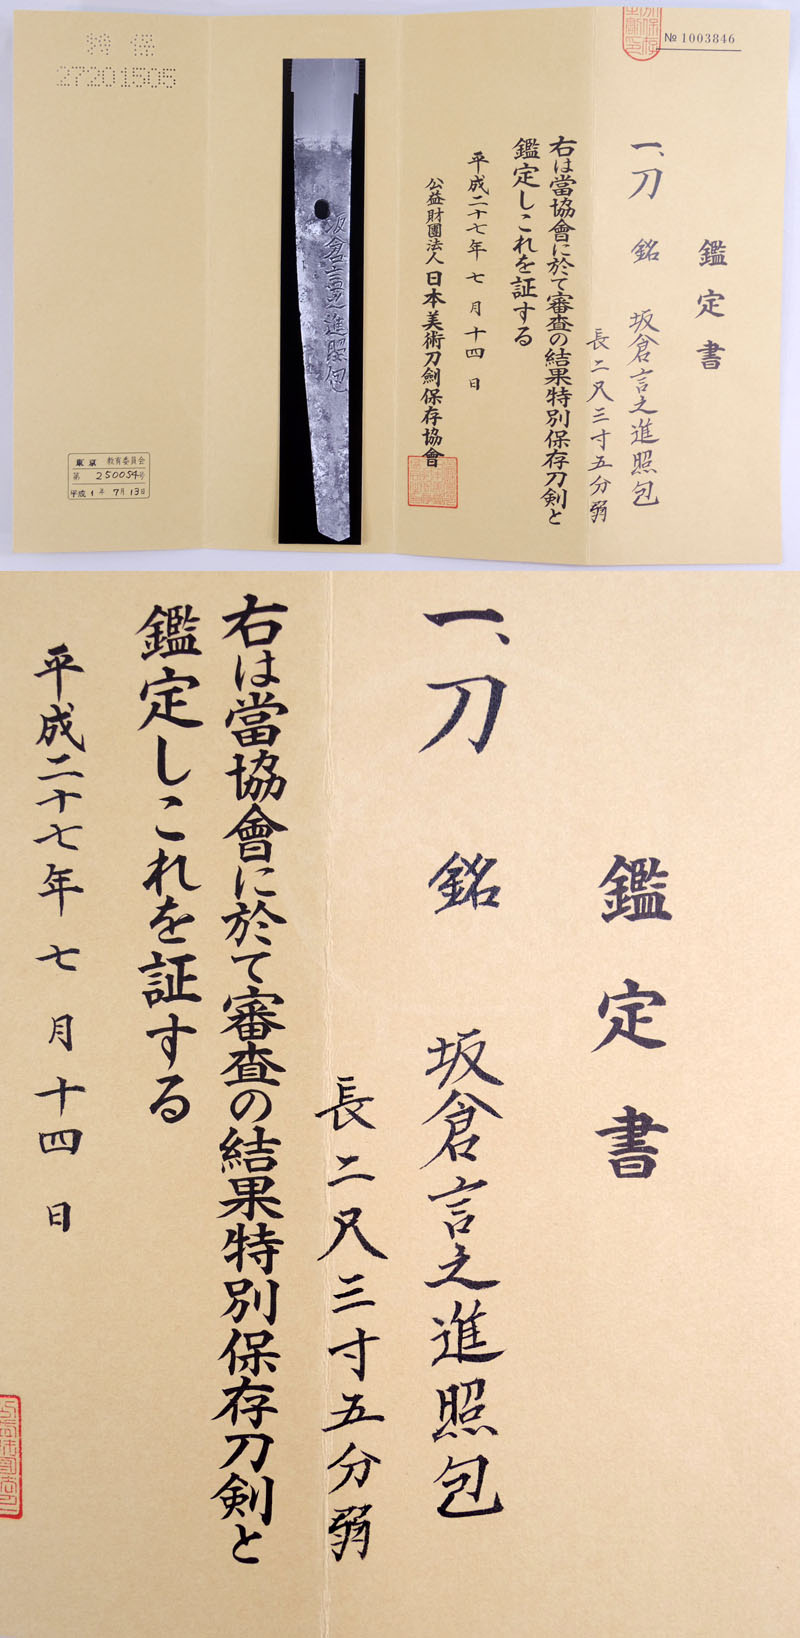 № 1003846
鑑定書
一、刀 銘 坂倉言之進照包
長二尺三寸五分弱
右は當協會に於て審査の結果特別保存刀剣と
鑑定しこれを証する
平成二十七年 七 月 十四 日
公益財團法人 日本美術刀劍保存協會
坂倉言之進照包
特 保
27201505
東京 教育委員会
第 250054号
平成 1 年 7月 13日
鑑定書
一、刀 銘 坂倉言之進照包
長二尺三寸五分弱
右は當協會に於て審査の結果特別保存刀剣と
鑑定しこれを証する
平成二十七年 七 月 十四 日